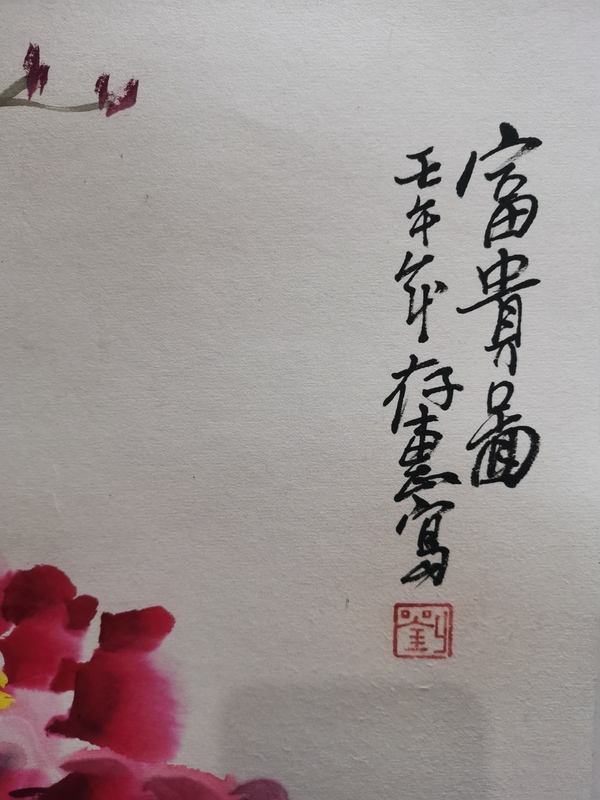 富貴圖
壬午年存惠寫
劉